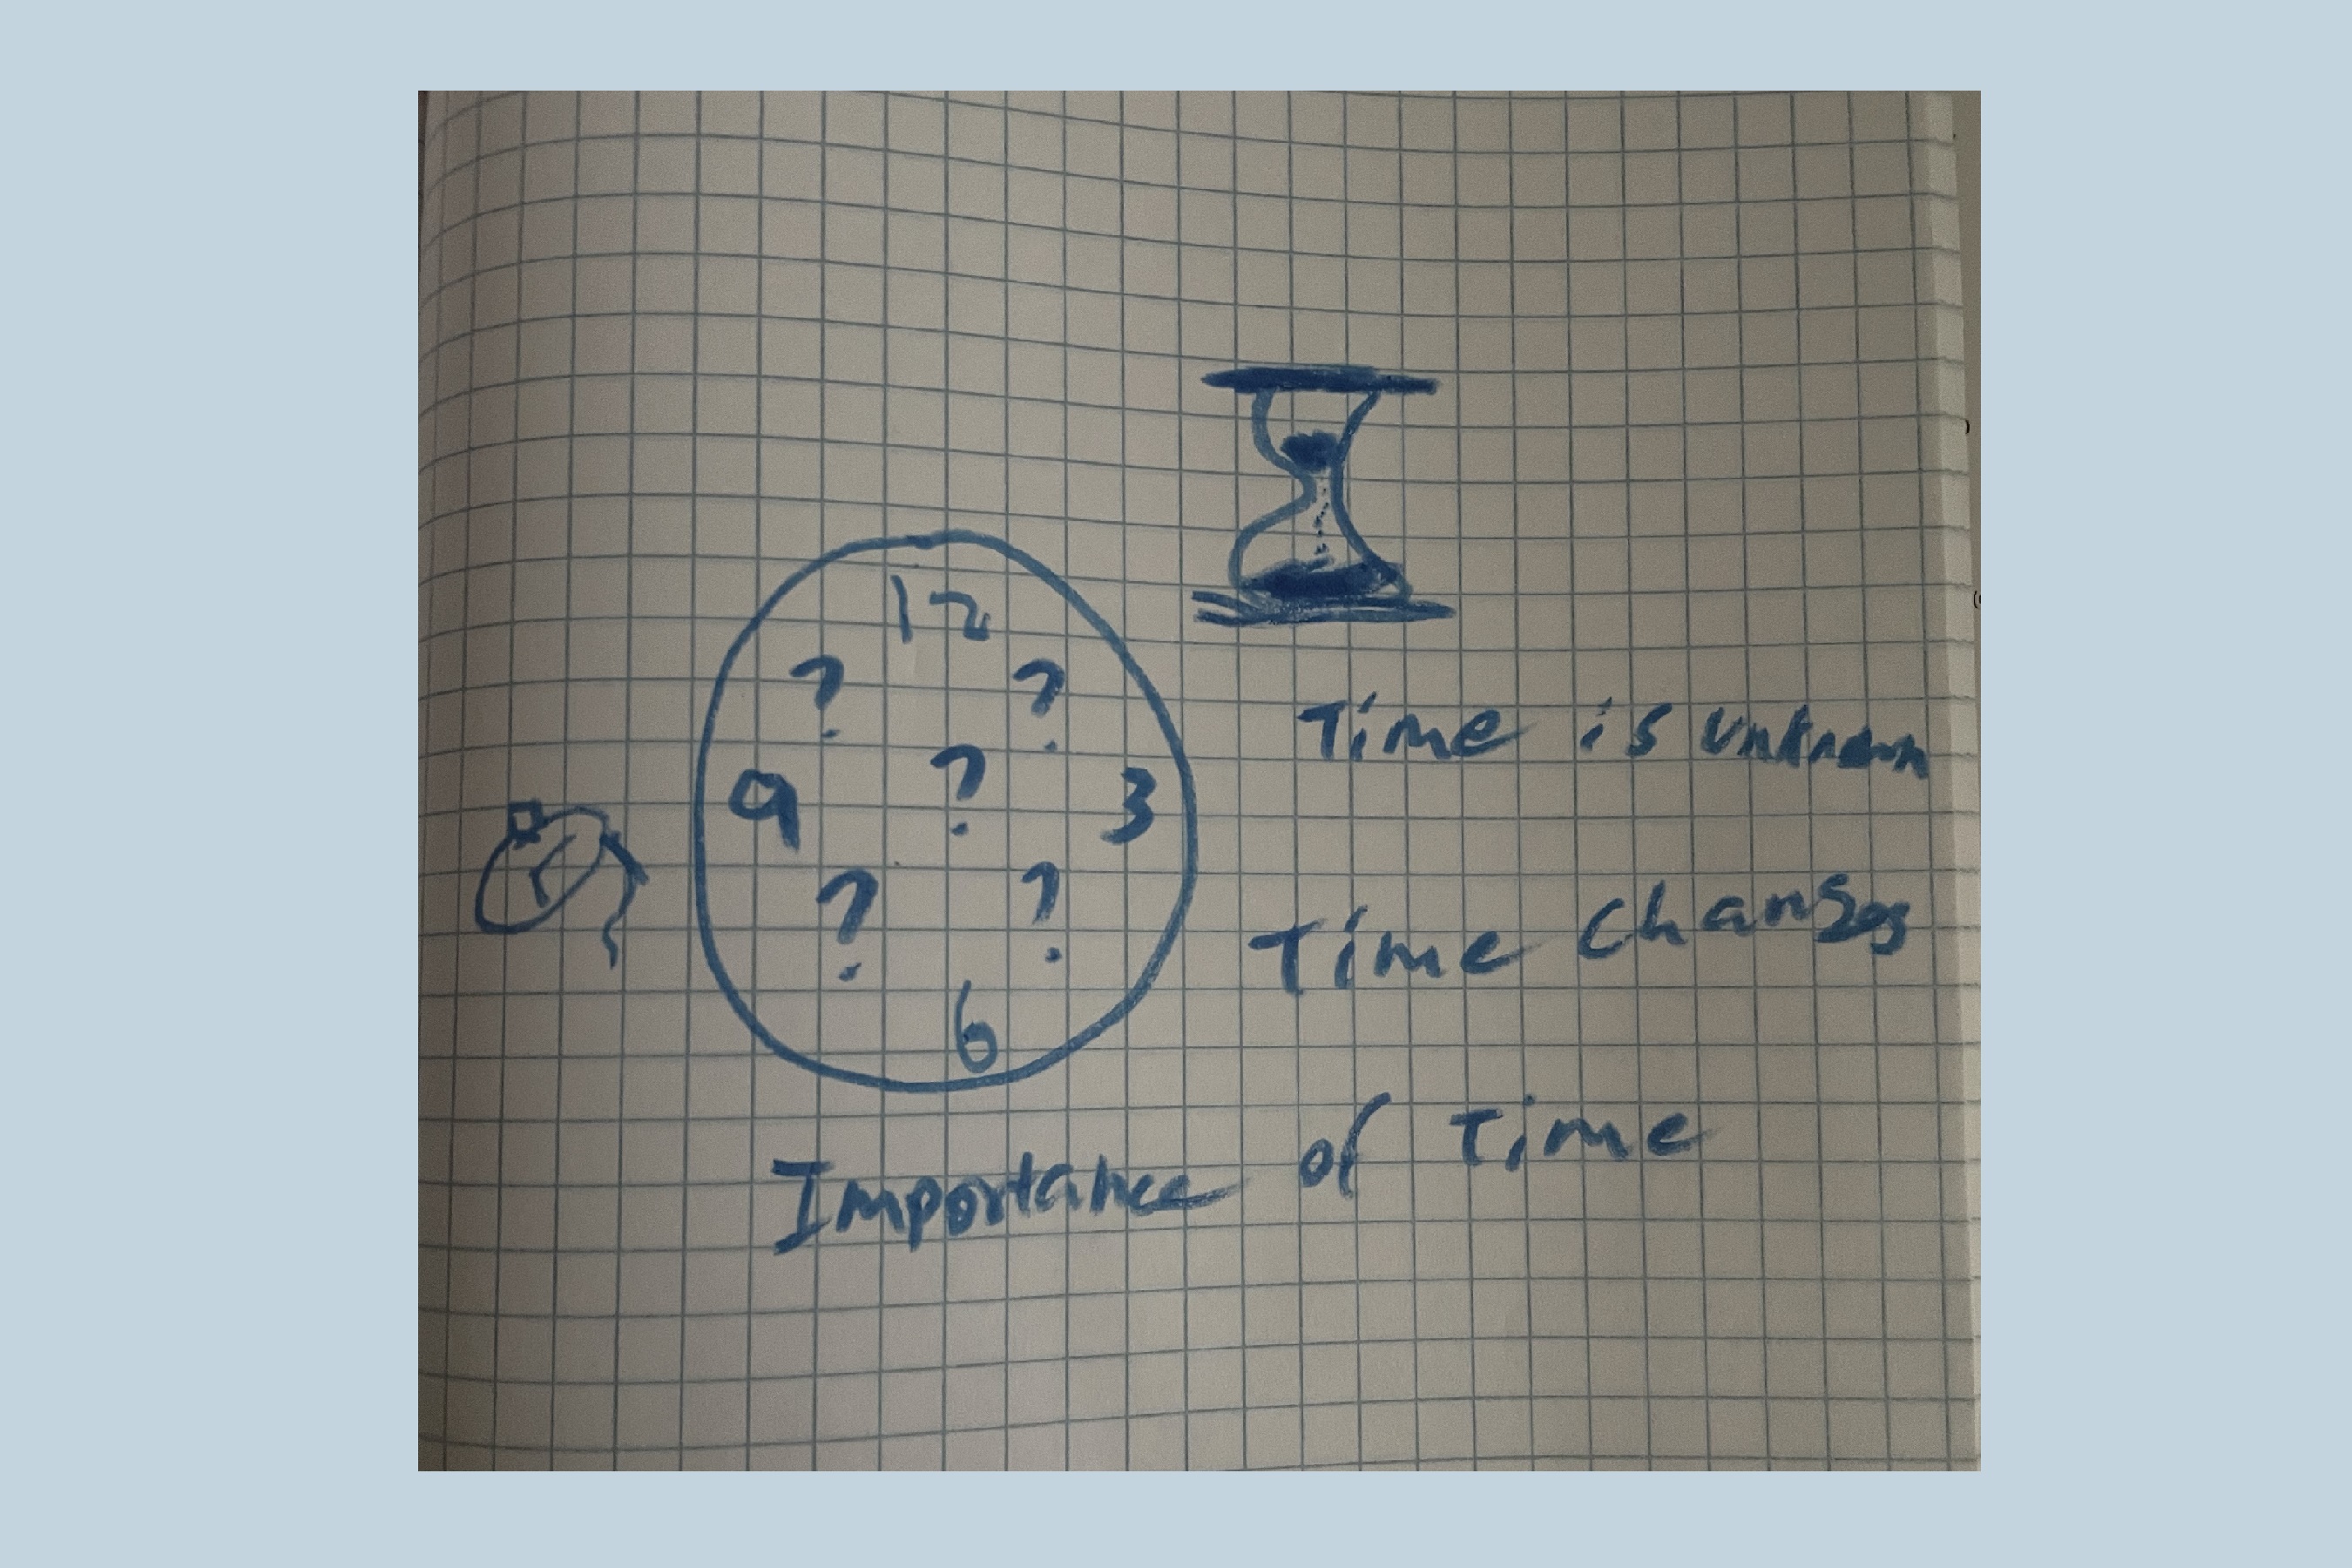 12
? ?
9 ? 3
? ?
6
Time is unknown
Time changes
Importance of Time